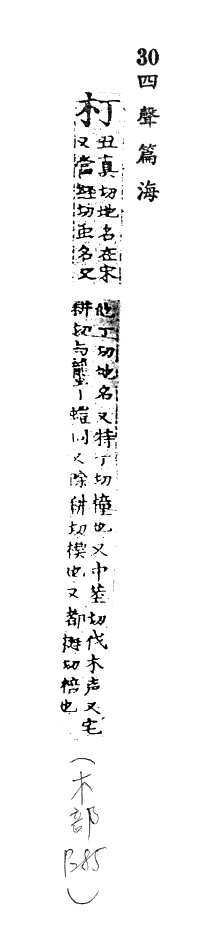 30四聲篇海
朾
丑真切地名在宋
又當經切名又
他丁切地名又特丁切橦也又中莖切伐木声又宅
耕切与蠪丨螘同又除耕切楔也又都挺切棓也
(木部B85)